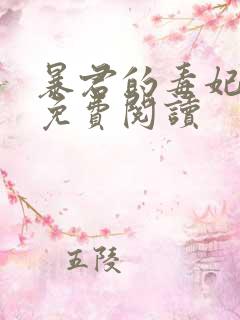 暴君的毒妃
免費閱讀
五陵